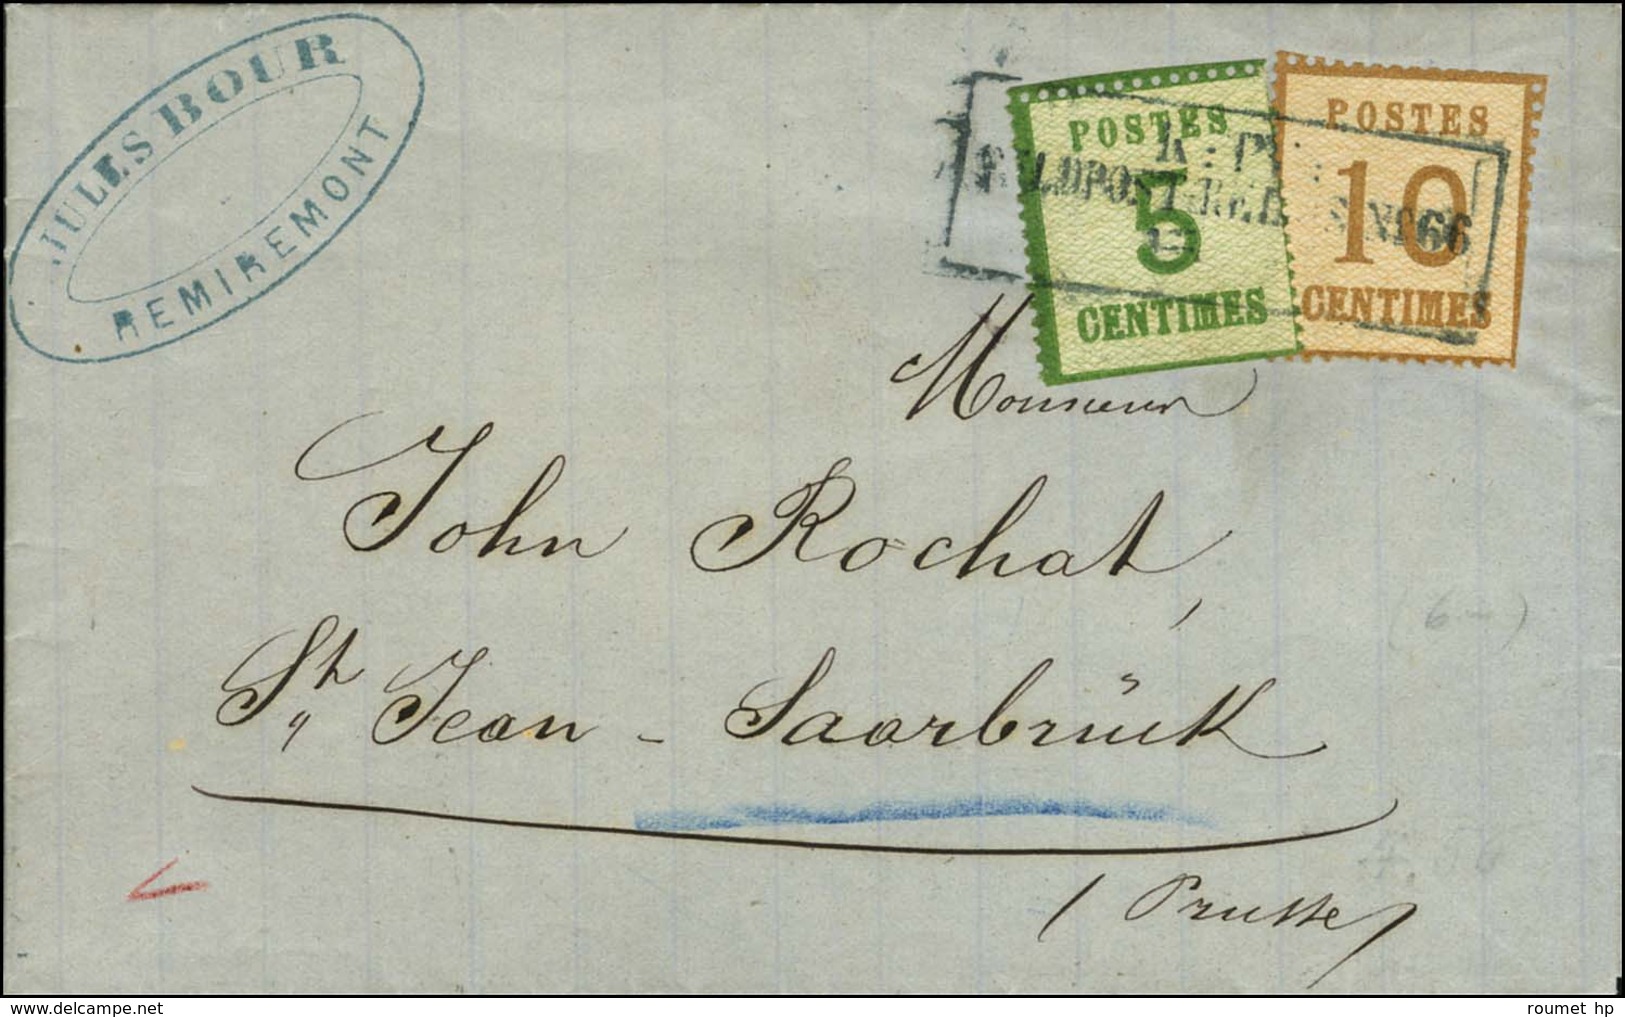 JULES BOUR
REMIREMONT
POSTES
5
CENTIMES
POSTES
10
CENTIMES
K: P:
FELDPOST-RELAIS No 66
Monsieur
John Rochat,
St Jean - Saarbrück
(Prusse)
(6-)
roumet hp